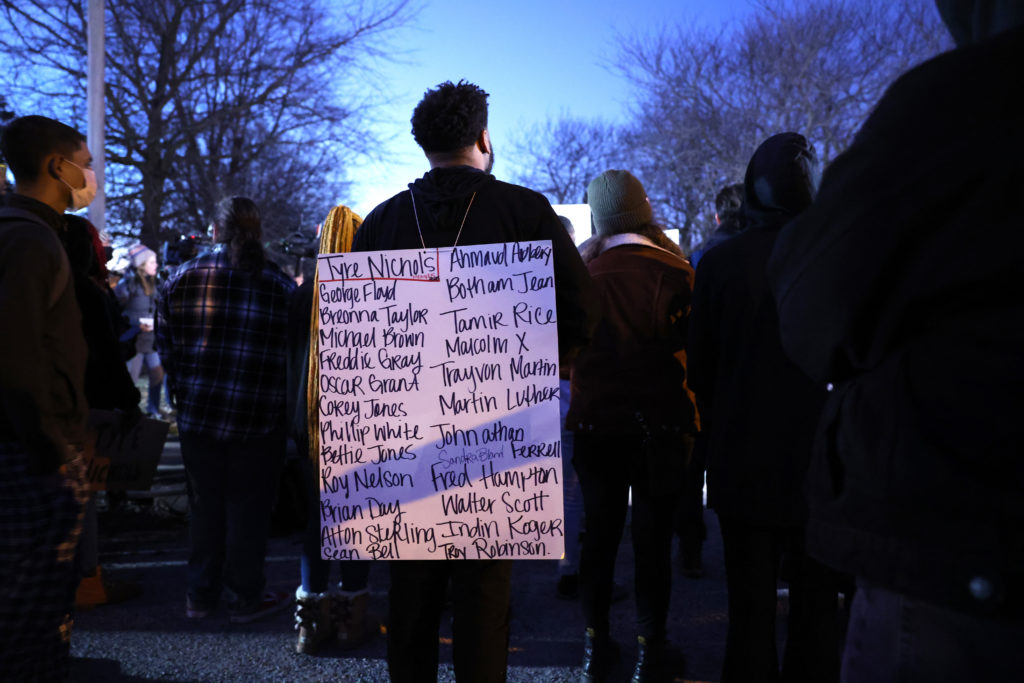 Tyre Nichols
George Floyd
Breonna Taylor
Michael Brown
Freddie Gray
Oscar Grant
Corey Jones
Phillip White
Bettie Jones
Roy Nelson
Brian Day
Alton Sterling
Sean Bell
Ahmaud Arbery
Botham Jean
Tamir Rice
Malcolm X
Trayvon Martin
Martin Luther
Johnathan
Sandra Bland Ferrell
Fred Hampton
Walter Scott
Indin Kager
Troy Robinson.